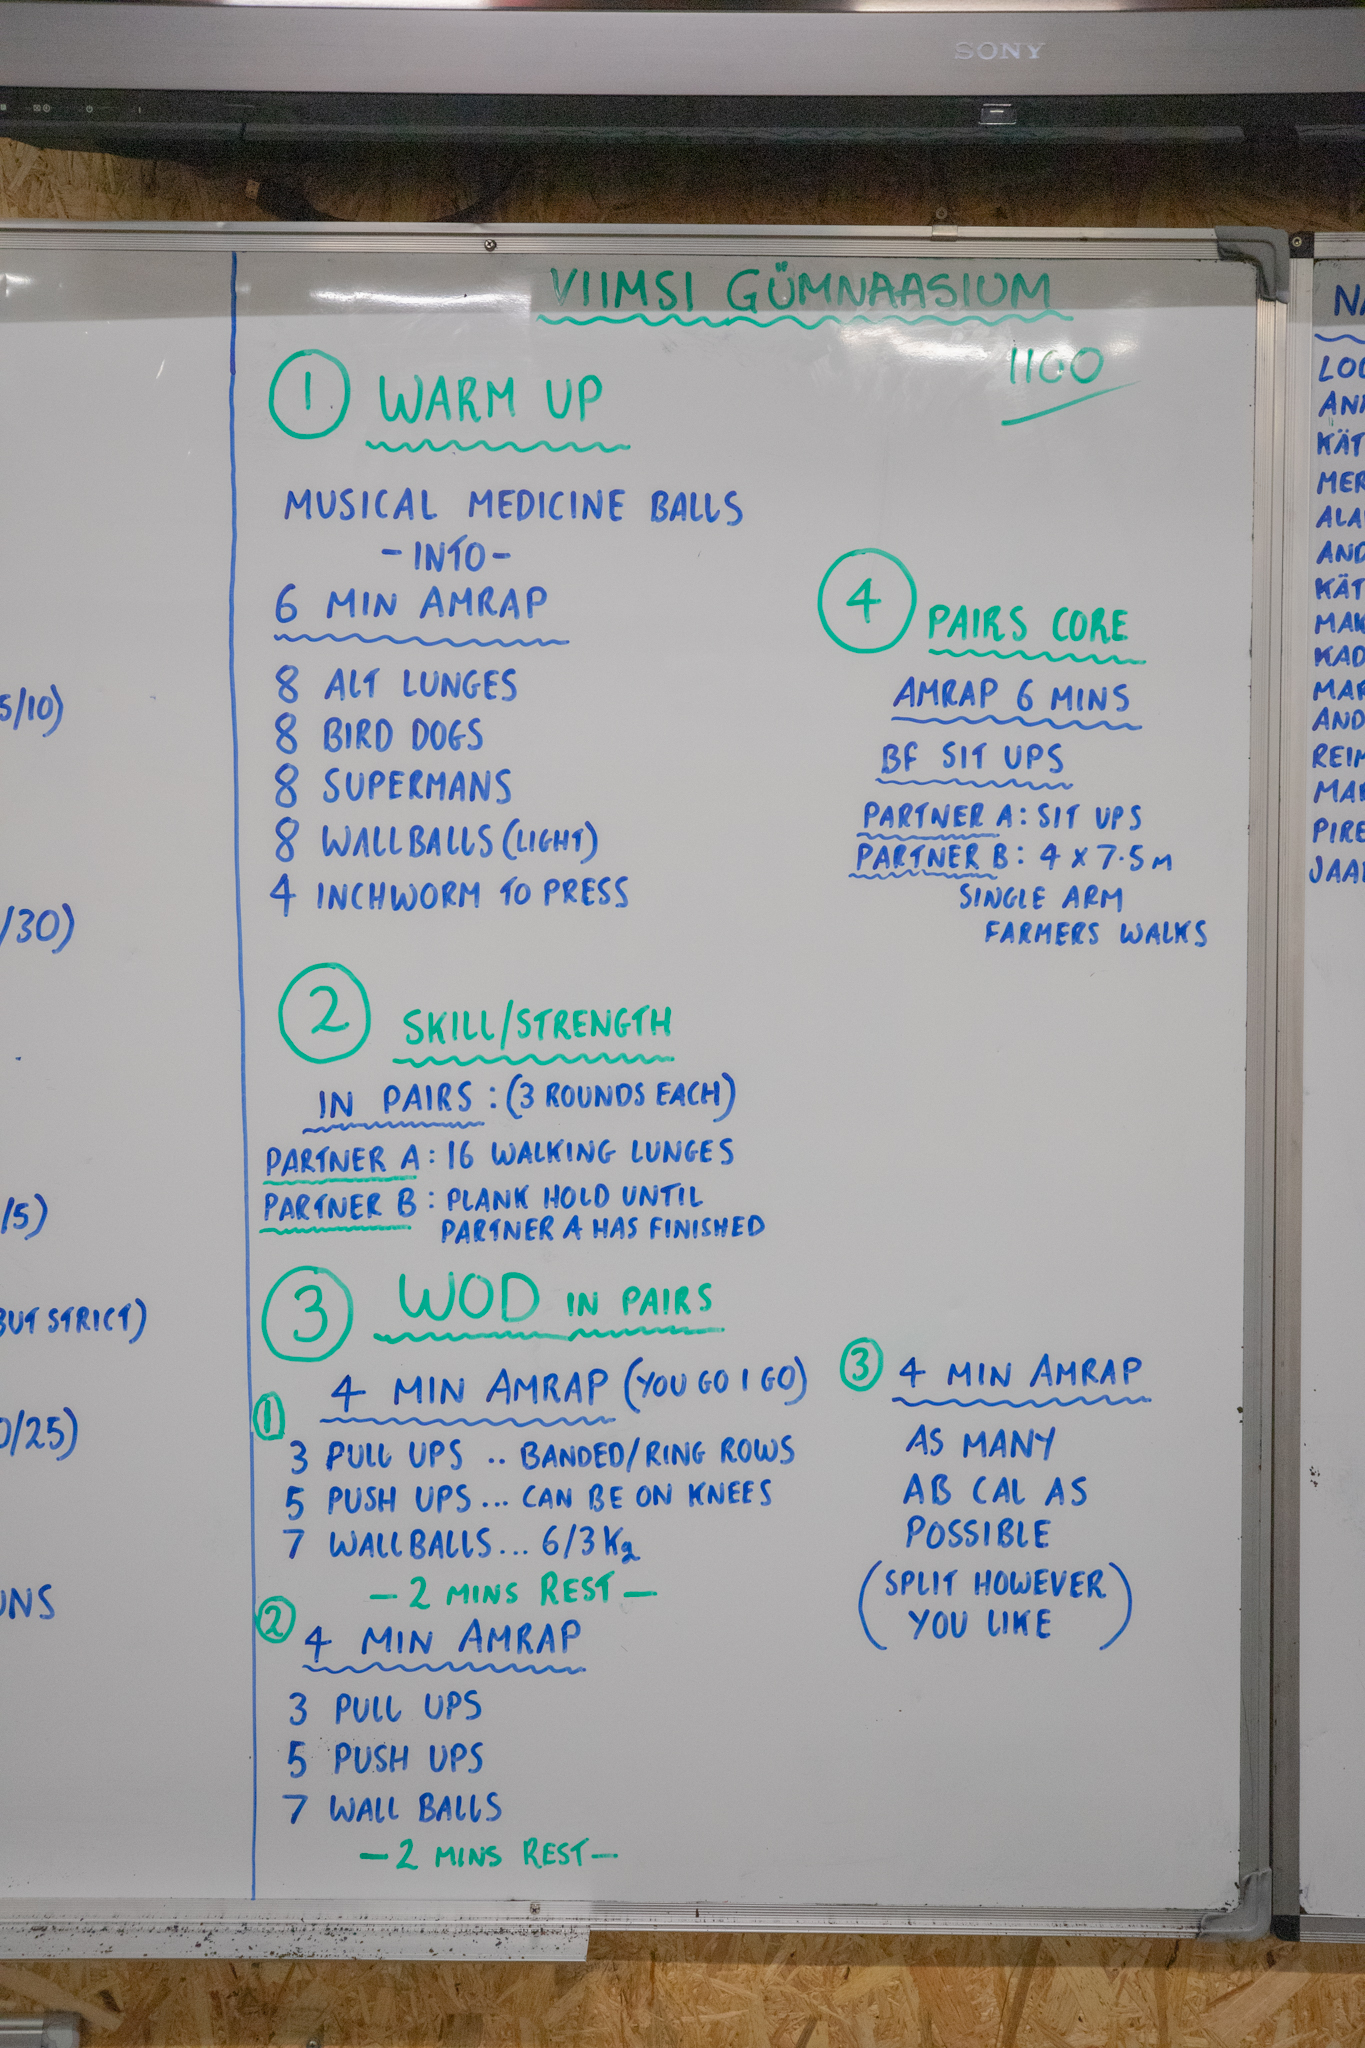 SONY
5/10)
/30)
/5)
BUT STRICT)
0/25)
UNS
VIIMSI GÜMNAASIUM
1100
1 WARM UP
MUSICAL MEDICINE BALLS
-INTO-
6 MIN AMRAP
8 ALT LUNGES
8 BIRD DOGS
8 SUPERMANS
8 WALLBALLS (LIGHT)
4 INCHWORM TO PRESS
2 SKILL/STRENGTH
IN PAIRS: (3 ROUNDS EACH)
PARTNER A: 16 WALKING LUNGES
PARTNER B: PLANK HOLD UNTIL
PARTNER A HAS FINISHED
3 WOD IN PAIRS
1 4 MIN AMRAP (YOU GO I GO)
3 PULL UPS .. BANDED/RING ROWS
5 PUSH UPS ... CAN BE ON KNEES
7 WALLBALLS... 6/3 Kg
- 2 MINS REST -
2 4 MIN AMRAP
3 PULL UPS
5 PUSH UPS
7 WALL BALLS
- 2 MINS REST -
3 4 MIN AMRAP
AS MANY
AB CAL AS
POSSIBLE
(SPLIT HOWEVER
YOU LIKE)
4 PAIRS CORE
AMRAP 6 MINS
BF SIT UPS
PARTNER A: SIT UPS
PARTNER B: 4 X 7.5M
SINGLE ARM
FARMERS WALKS
NA
LOO
ANN
KÄT
MER
ALA
AND
KÄT
MAK
KAD
MAR
AND
REIM
MAR
PIRE
JAA